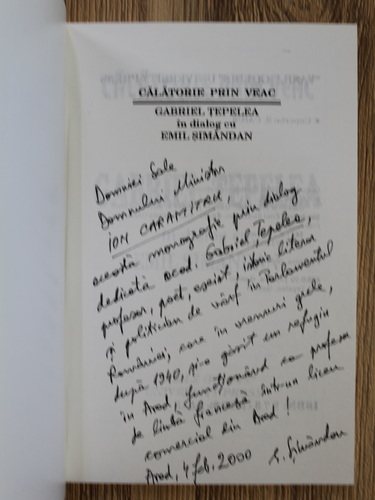 CĂLĂTORIE PRIN VEAC
GABRIEL ȚEPELEA
în dialog cu
EMIL ȘIMĂNDAN
Domniei Sale
Domnului Ministru
ION CARAMITRU,
această monografie prin dialog
dedicată acad. Gabriel Țepelea,
profesor, poet, eseist, istoric literar
și politician de vârf în Parlamentul
României, care în vremuri grele,
după 1940, și-a găsit un refugiu
în Arad, funcționând ca profesor
de limbă franceză într-un liceu
comercial din Arad!
Arad, 4 feb. 2000 E. Șimăndan